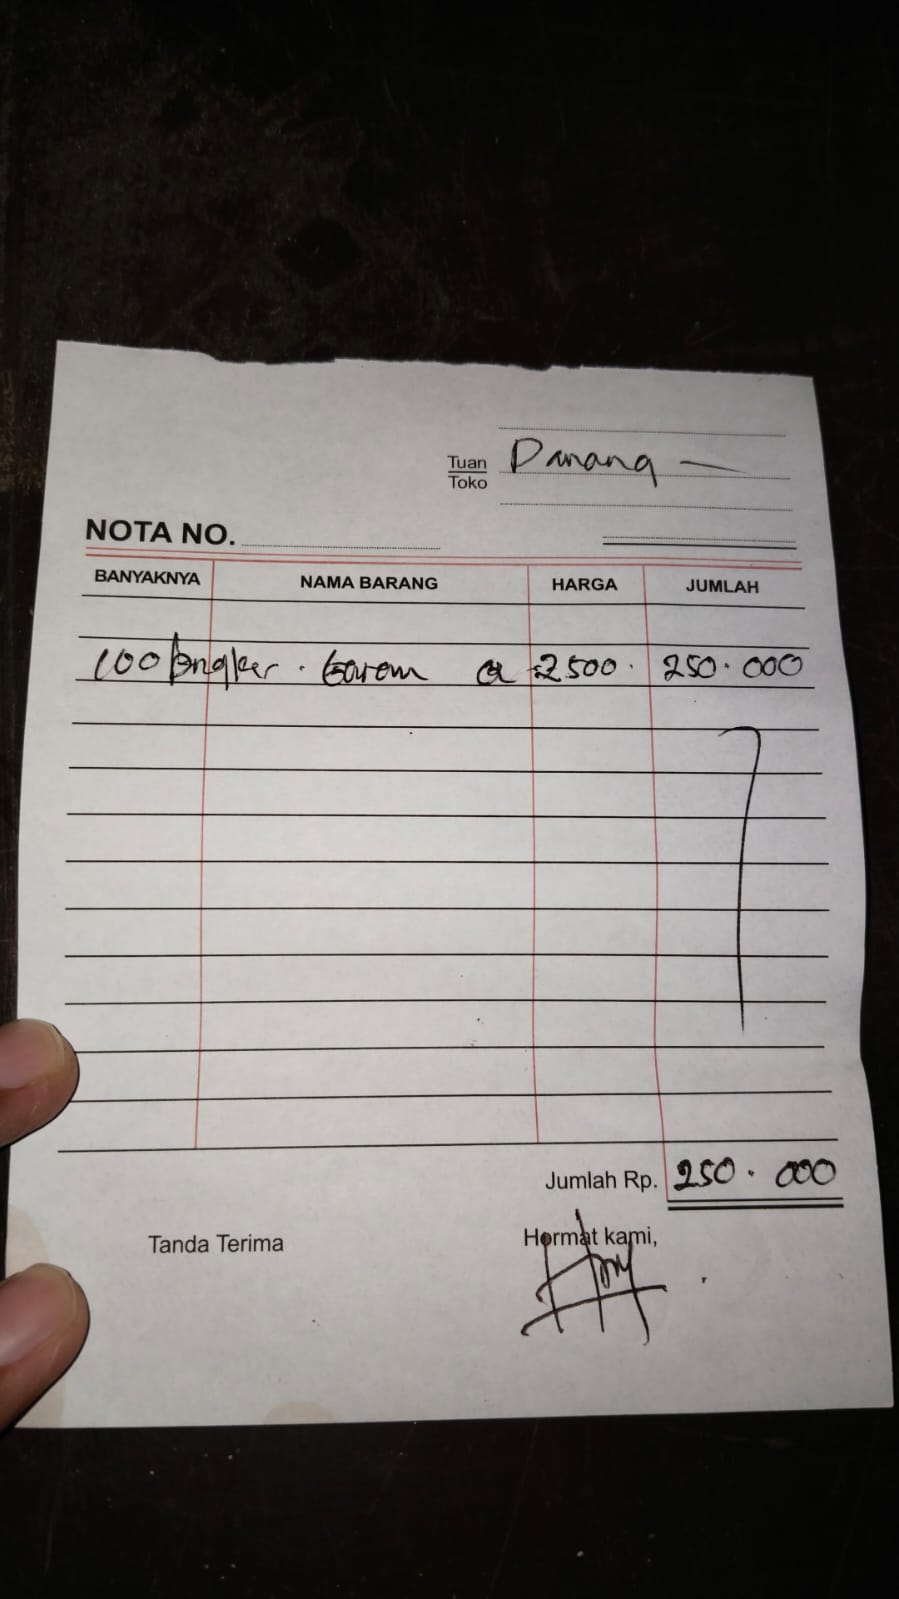 Tuan
Toko
Danang
NOTA NO.
BANYAKNYA NAMA BARANG HARGA JUMLAH
100 bngker . Garem a 2500. 250.000
Jumlah Rp. 250.000
Tanda Terima Hormat kami,